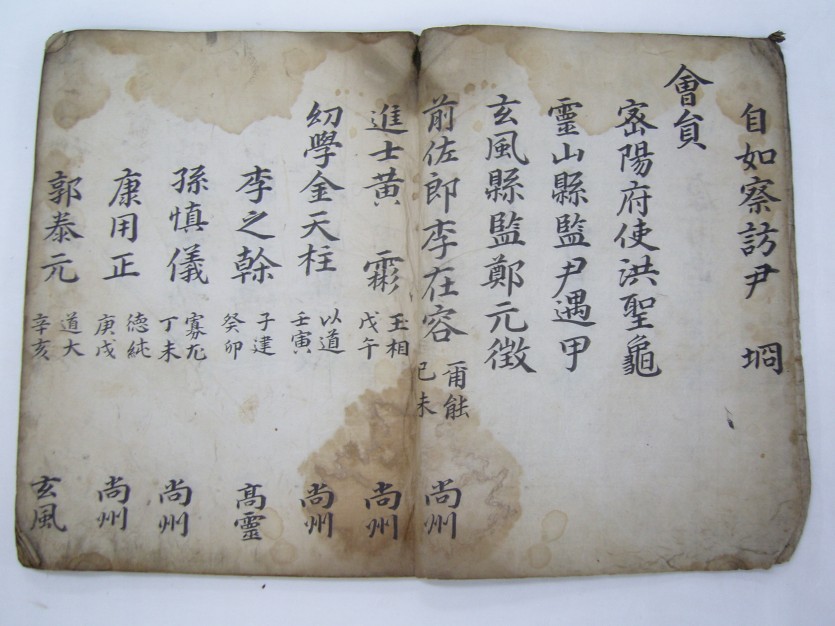 自如察訪尹 坰
會員
密陽府使洪聖龜
靈山縣監尹遇甲
玄風縣監鄭元徵
前佐郎李在容 爾能 己未 尚州
進士黃 霦 玉相 戊午 尚州
幼學金天柱 以道 壬寅 尚州
李之榦 子建 癸卯 高靈
孫愼儀 寡尤 丁未 尚州
康用正 德純 庚戌 尚州
郭泰元 道大 辛亥 玄風